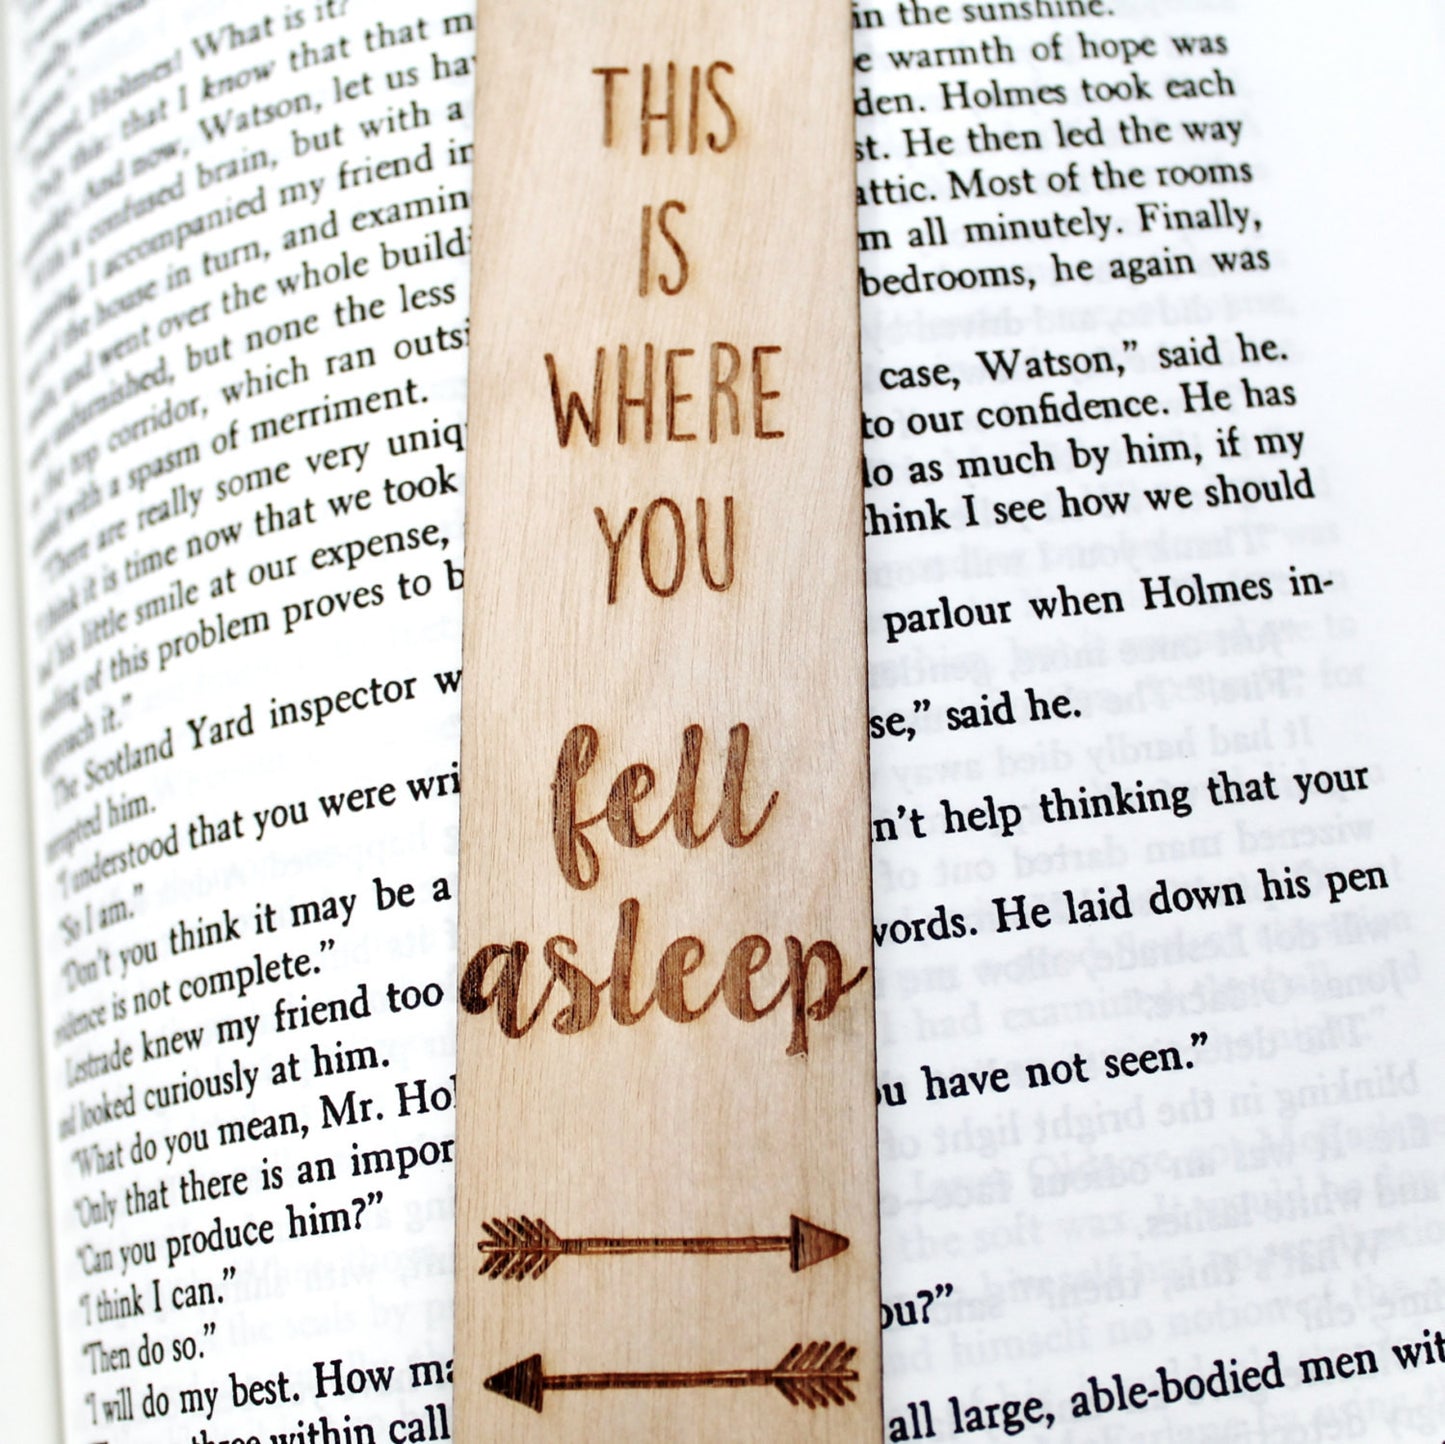 THIS
IS
WHERE
YOU
fell
asleep
Holmes! What is it?
that I know that that m
And now, Watson, let us ha
a confused brain, but with a
I accompanied my friend in
the house in turn, and examin
and went over the whole buildi
unfurnished, but none the less
the top corridor, which ran outsi
with a spasm of merriment.
"There are really some very uniq
think it is time now that we took
his little smile at our expense,
of this problem proves to b
approach it."
The Scotland Yard inspector w
him.
"I understood that you were wri
"So I am."
"Don't you think it may be a
is not complete."
Lestrade knew my friend too
looked curiously at him.
"What do you mean, Mr. Hol
"Only that there is an impor
"Can you produce him?"
"I think I can."
"Then do so."
"I will do my best. How ma
within call
in the sunshine.
e warmth of hope was
den. Holmes took each
st. He then led the way
attic. Most of the rooms
m all minutely. Finally,
bedrooms, he again was
case, Watson," said he.
to our confidence. He has
do as much by him, if my
think I see how we should
parlour when Holmes in-
se," said he.
n't help thinking that your
words. He laid down his pen
ou have not seen."
ou?"
all large, able-bodied men wit